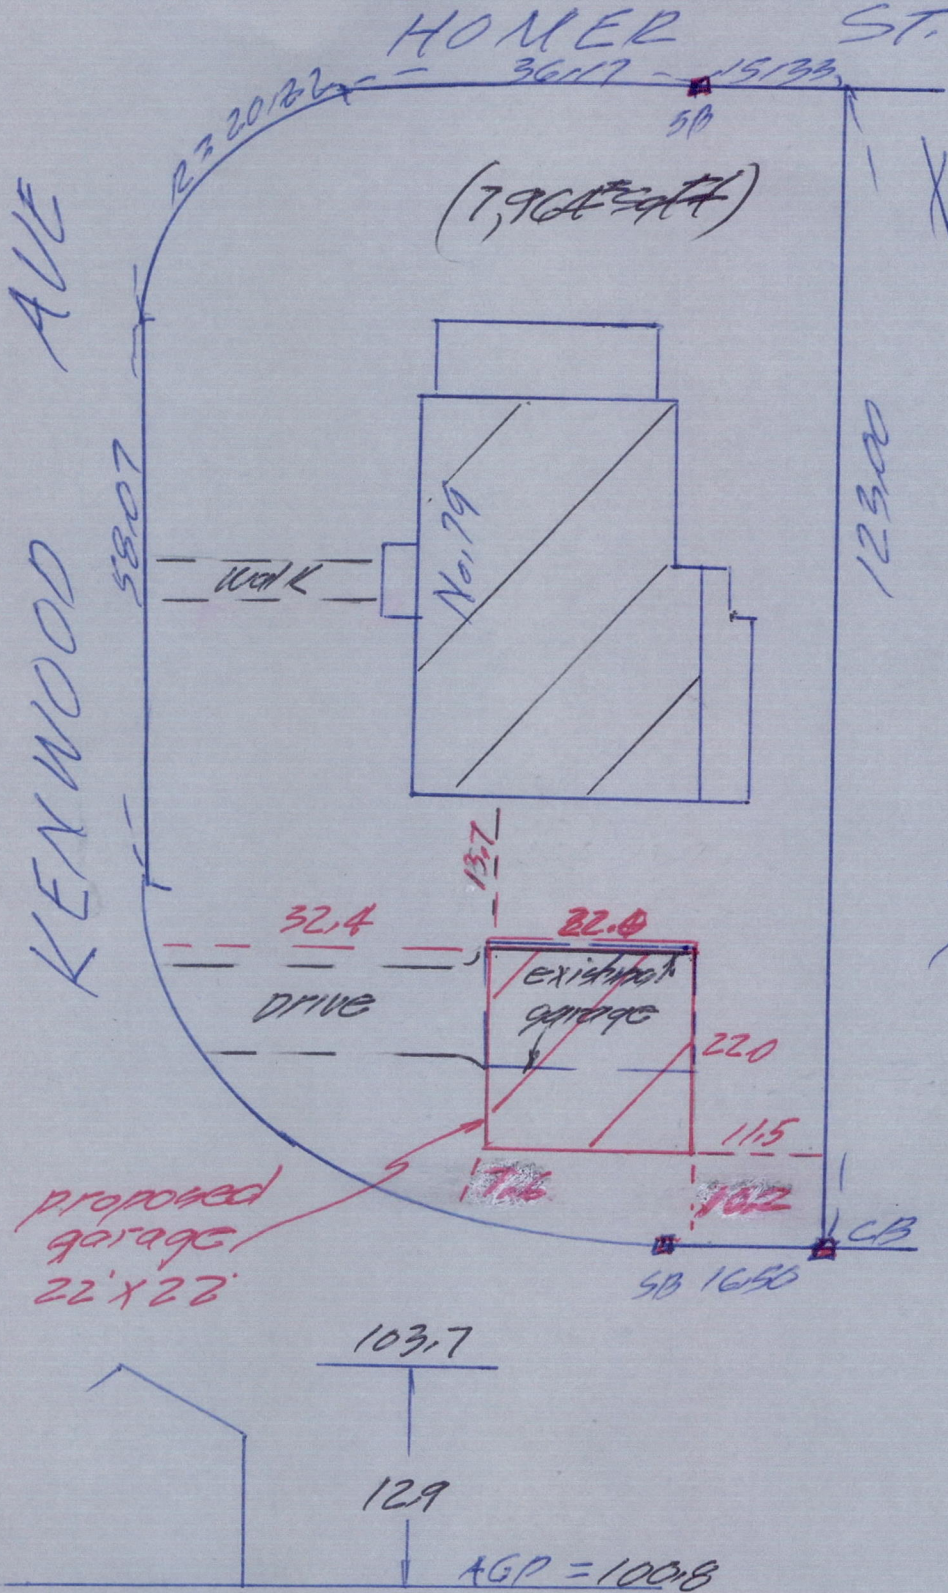 HOMER ST.
36.17 15.33
SB
(7,964± sq ft)
KENWOOD AVE
58.07
123.00
walk
No. 79
13.7
32.4
22.0
existing
garage
Drive
22.0
11.5
7.6
10.2
proposed
garage
22' x 22'
SB 16.50
CB
103.7
12.9
AGP = 100.8